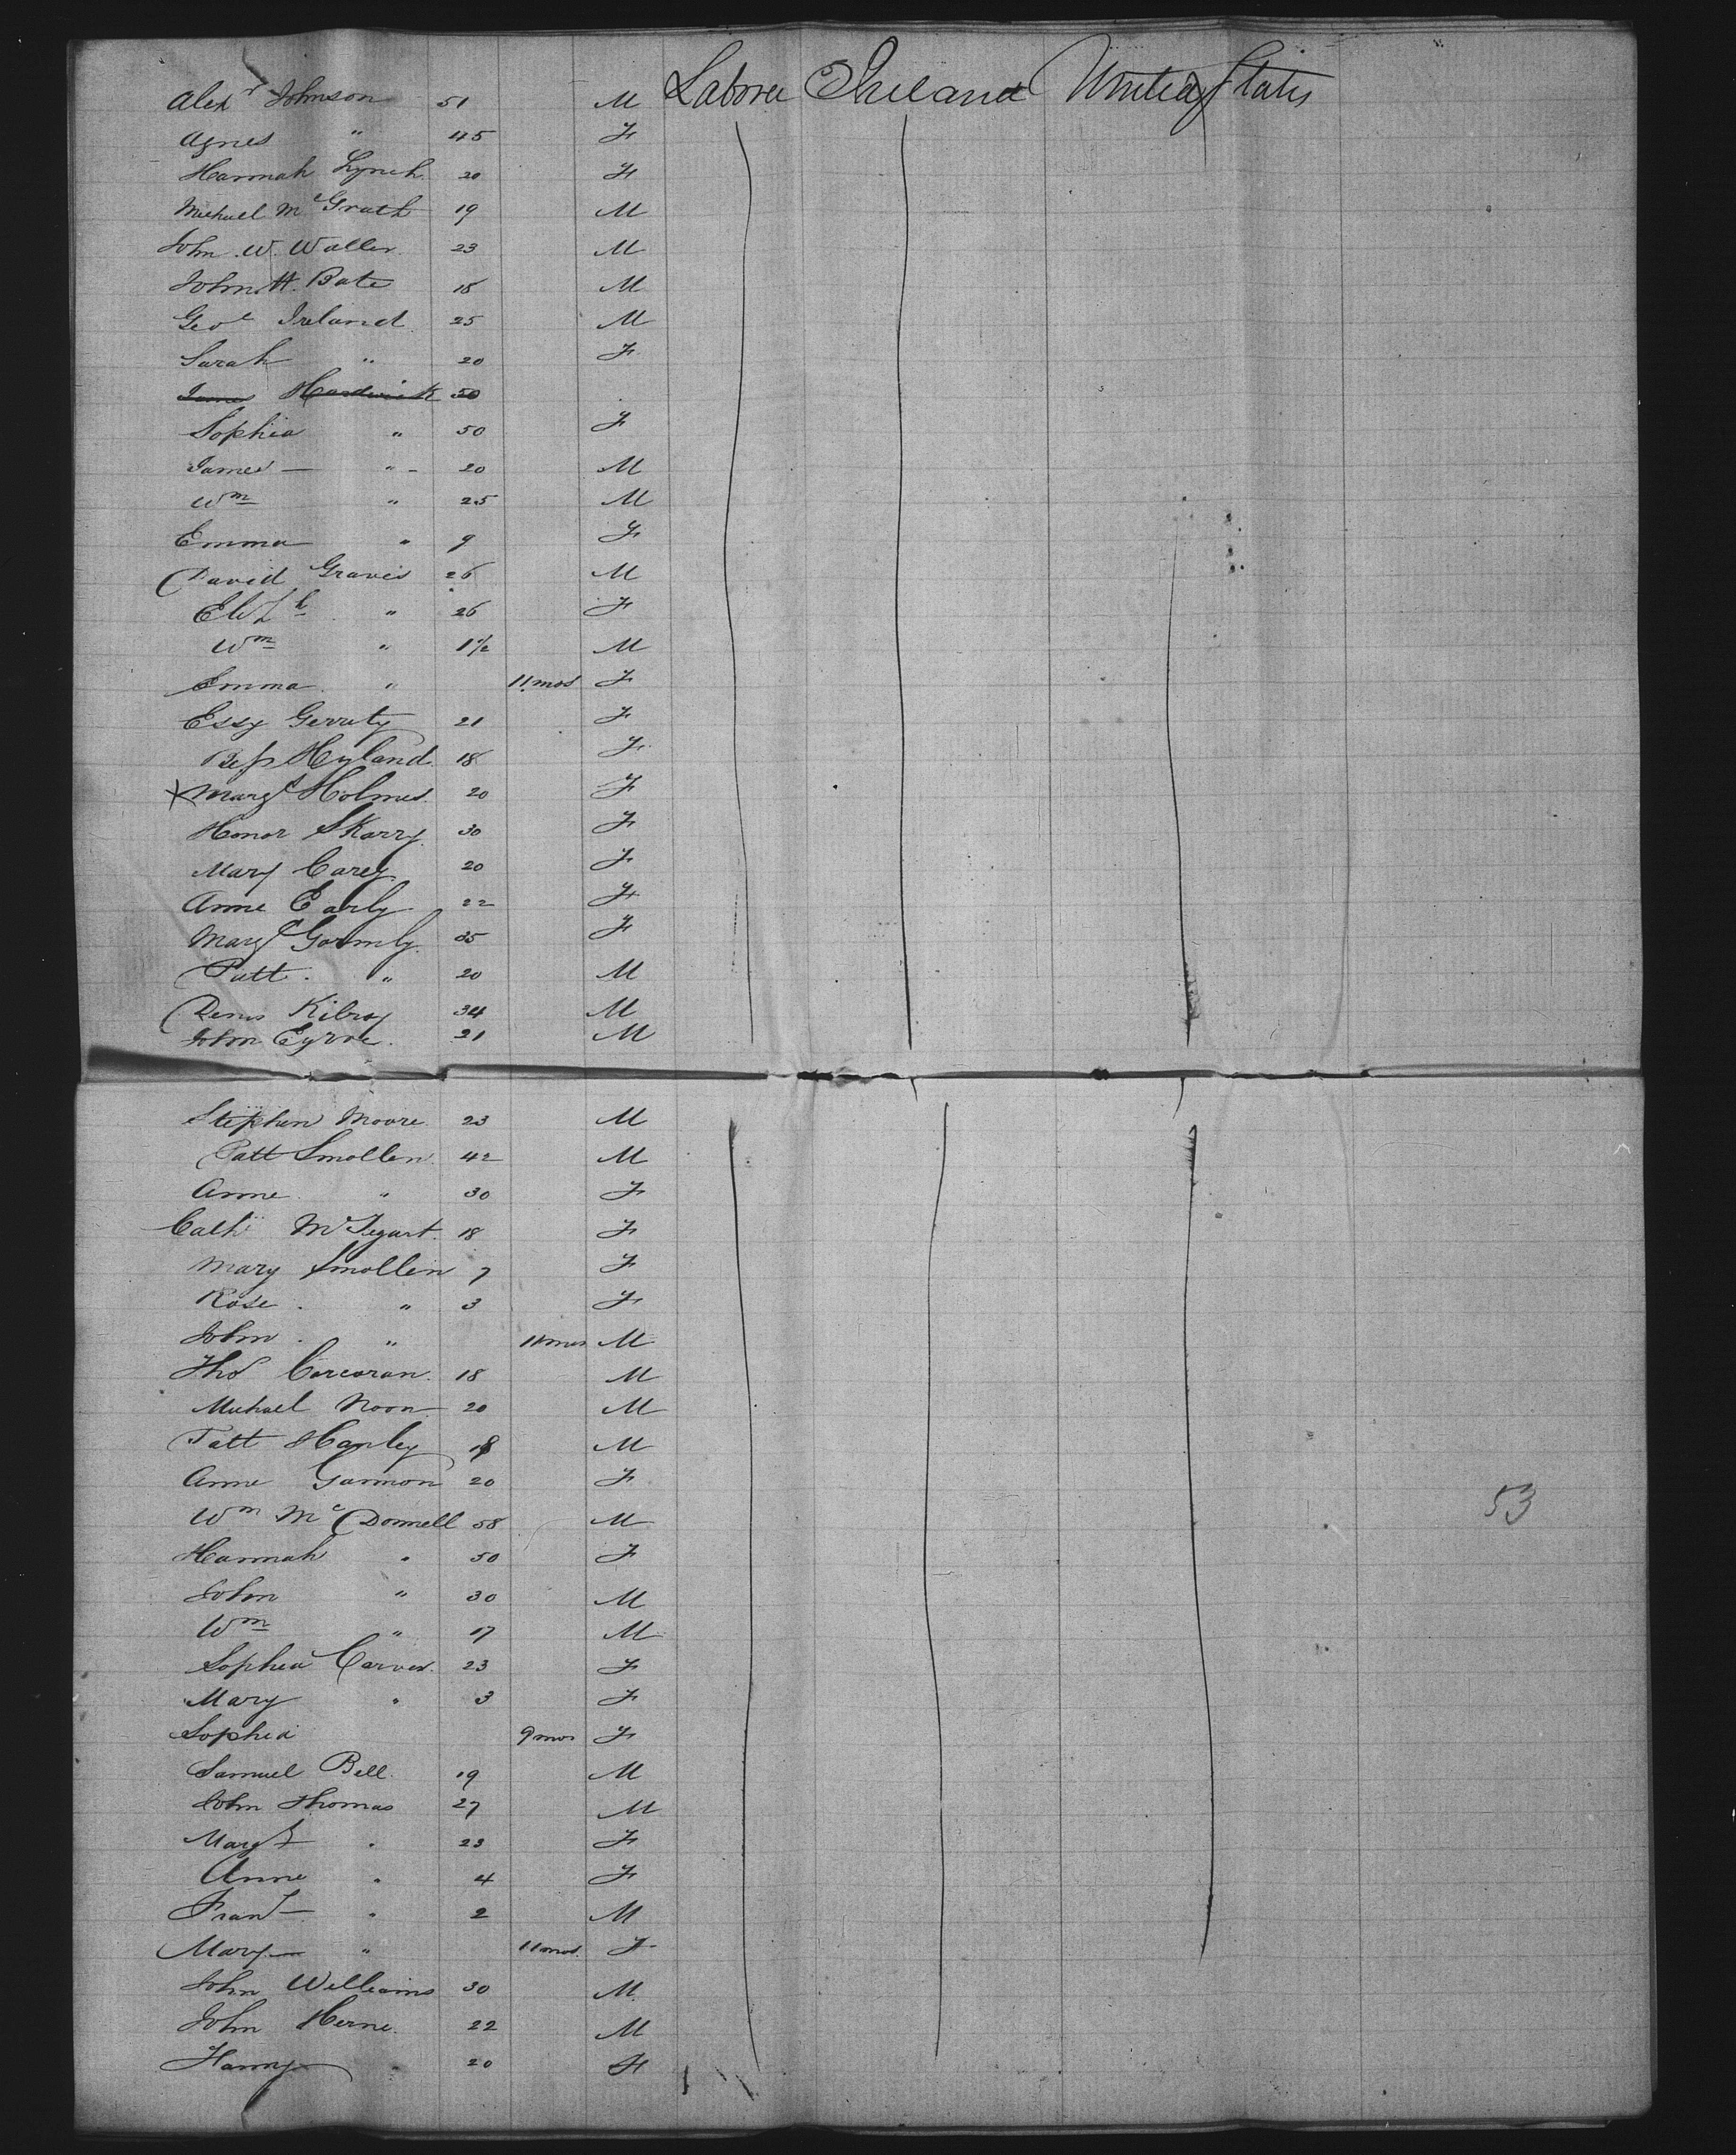 Alexr Johnson 51 M Laborer Ireland United States
Agnes " 45 F
Hannah Lynch 20 F
Michael McGrath 19 M
John W. Waller 23 M
John H. Bate 18 M
Geoe Ireland 25 M
Sarah " 20 F
James Hardwick 50
Sophia " 50 F
James — " - 20 M
Wm " 25 M
Emma " 9 F
David Graves 26 M
Elizh " 26 F
Wm " 1½ M
Emma " 11 mos F
Essy Gerruty 21 F
Bess Hyland 18 F
X Margt Holmes 20 F
Honor Skarry 30 F
Mary Carey 20 F
Anne Early 22 F
Margt Gormly 35 F
Patt " 20 M
Denis Kilroy 34 M
John Eyrre 21 M
Stephen Moore 23 M
Patt Smollen 42 M
Anne " 30 F
Cath McTegart 18 F
Mary Smollen 7 F
Rose " 3 F
John " 11 mos M
Thos Corcoran 18 M
Michael Noon 20 M
Patt Hanley 18 M
Anne Gannon 20 F
Wm McDonnell 58 M 53
Hannah " 50 F
John " 30 M
Wm " 17 M
Sophia Carver 23 F
Mary " 3 F
Sophia 9 mos F
Samuel Bell 19 M
John Thomas 27 M
Margt " 23 F
Anne " 4 F
" 2 M
Mary " 11 mos. F
John Williams 30 M
John Herne 22 M
" 20 F